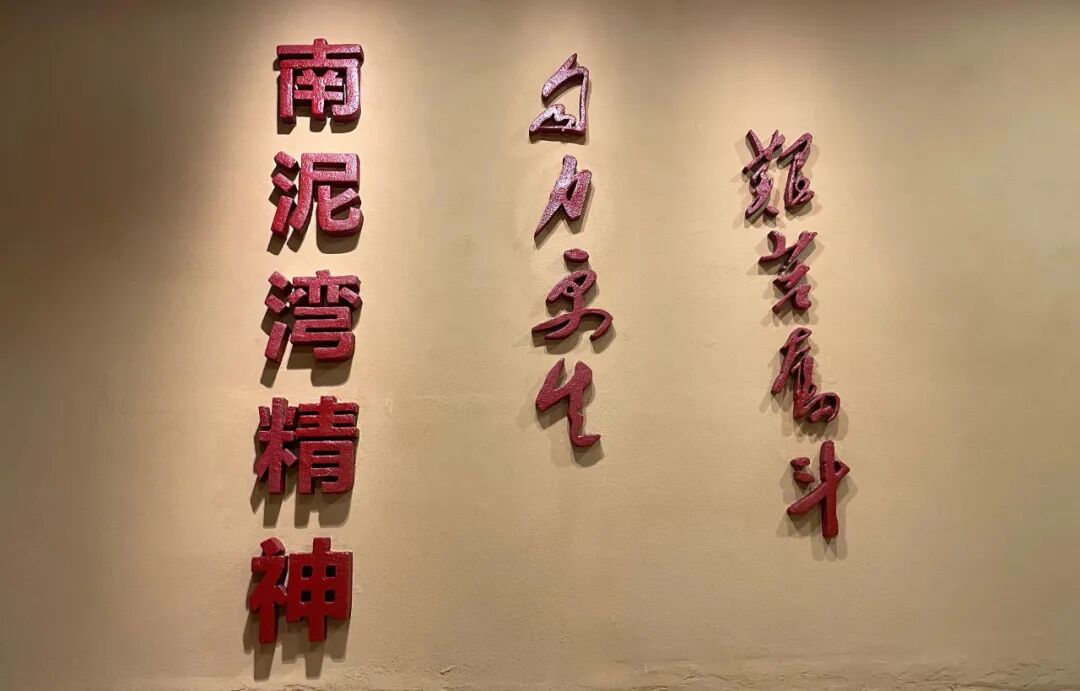 南泥湾精神
自力更生
艱苦奮斗